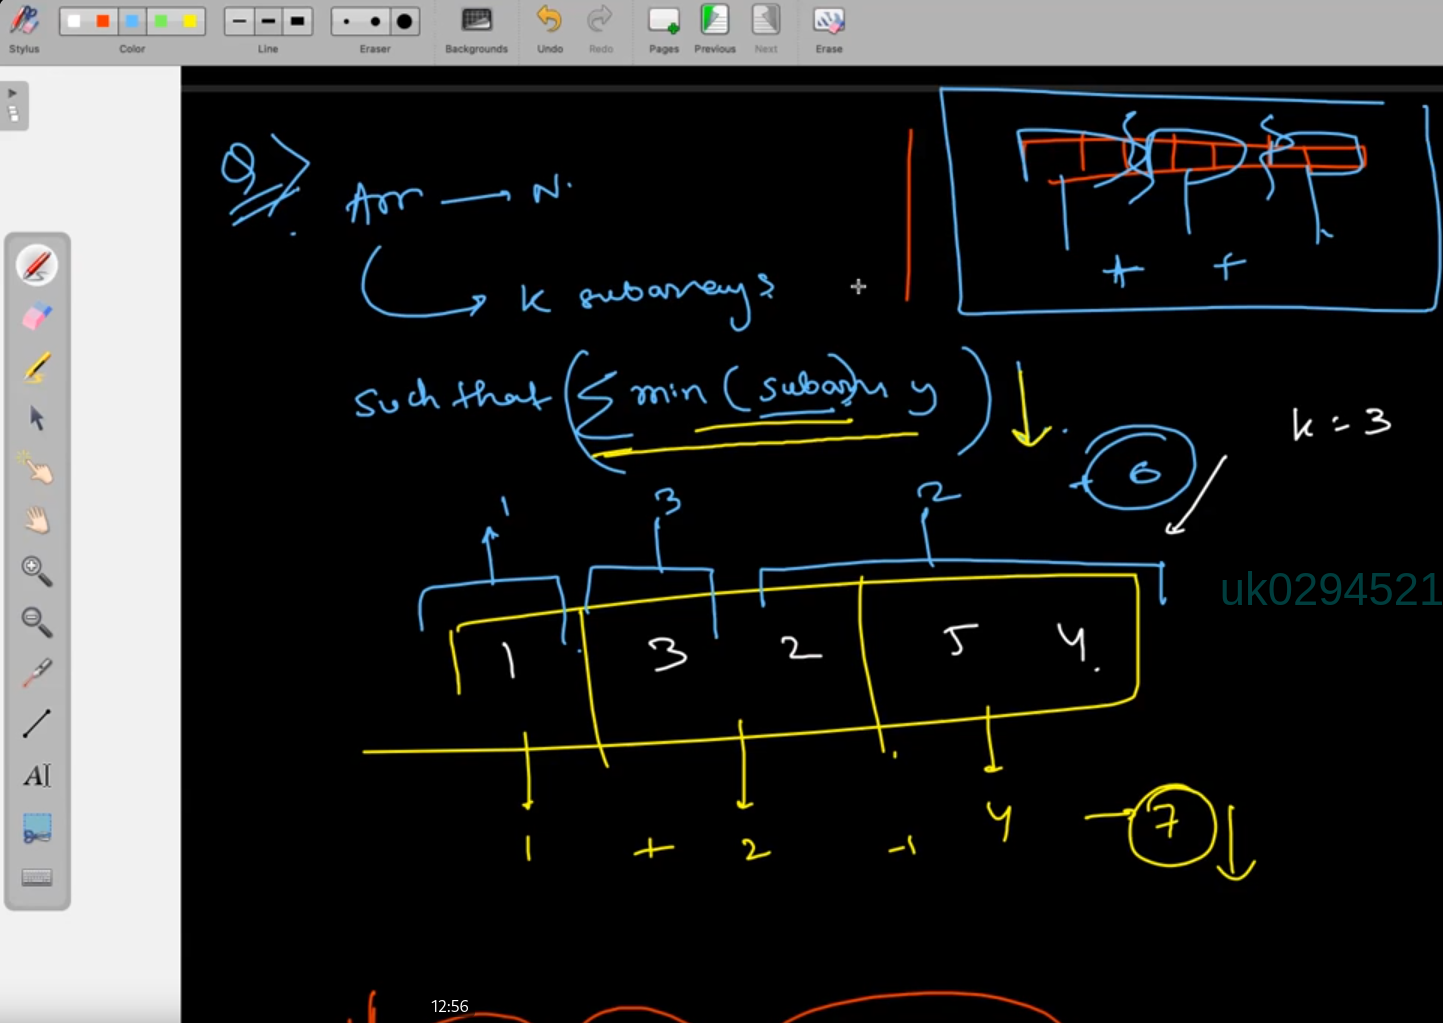 Stylus Color Line Eraser Backgrounds Undo Redo Pages Previous Next Erase
Q>
Arr → N.
K subarrays
+ +
such that (Σ min (subarray)) ↓
k = 3
+ 6
1 3 2
uk0294521
1 3 2 5 4
1 + 2 + 4 → 7 ↓
AI
12:56